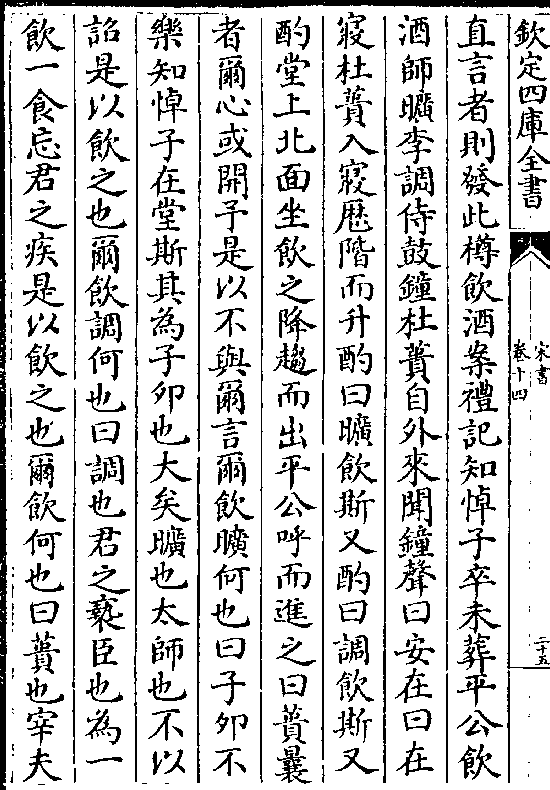 欽定四庫全書
宋書
卷十四
二十五
直言者則發此樽飲酒案禮記知悼子卒未葬平公飲
酒師曠李調侍鼓鐘杜蕢自外來聞鐘聲曰安在曰在
寢杜蕢入寢歷階而升酌曰曠飲斯又酌曰調飲斯又
酌堂上北面坐飲之降趨而出平公呼而進之曰蕢曩
者爾心或開子是以不與爾言爾飲曠何也曰子卯不
樂知悼子在堂斯其為子卯也大矣曠也太師也不以
詔是以飲之也爾飲調何也曰調也君之褻臣也為一
飲一食忘君之疾是以飲之也爾飲何也曰蕢也宰夫